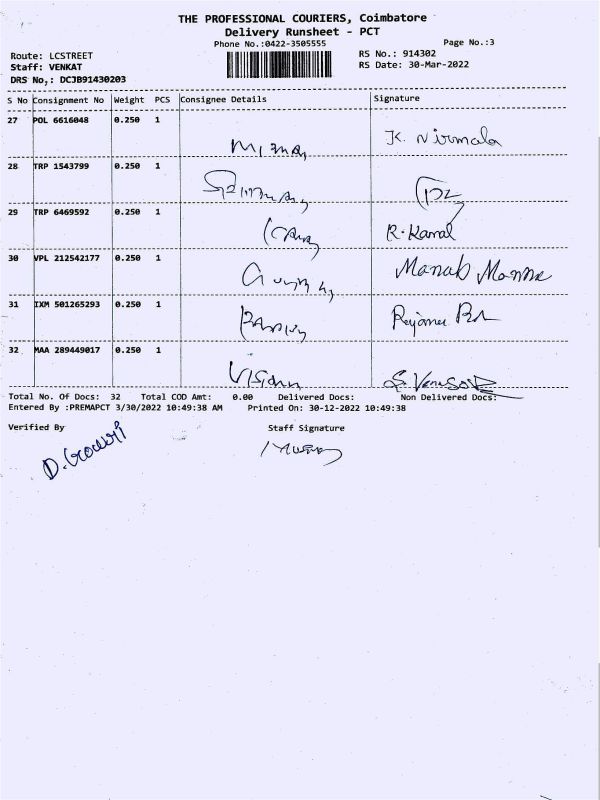 THE PROFESSIONAL COURIERS, Coimbatore
Delivery Runsheet - PCT
Phone No.:0422-3505555 Page No.:3
Route: LCSTREET RS No.: 914302
Staff: VENKAT RS Date: 30-Mar-2022
DRS No,: DCJB91430203
S No Consignment No Weight PCS Consignee Details Signature
27 POL 6616048 0.250 1
K. Nirmala
28 TRP 1543799 0.250 1
29 TRP 6469592 0.250 1
R. Kamal
30 VPL 212542177 0.250 1
Manab Manna
31 IXM 501265293 0.250 1
32 MAA 289449017 0.250 1
Total No. Of Docs: 32 Total COD Amt: 0.00 Delivered Docs: Non Delivered Docs:
Entered By :PREMAPCT 3/30/2022 10:49:38 AM Printed On: 30-12-2022 10:49:38
Verified By Staff Signature
D. Gowri